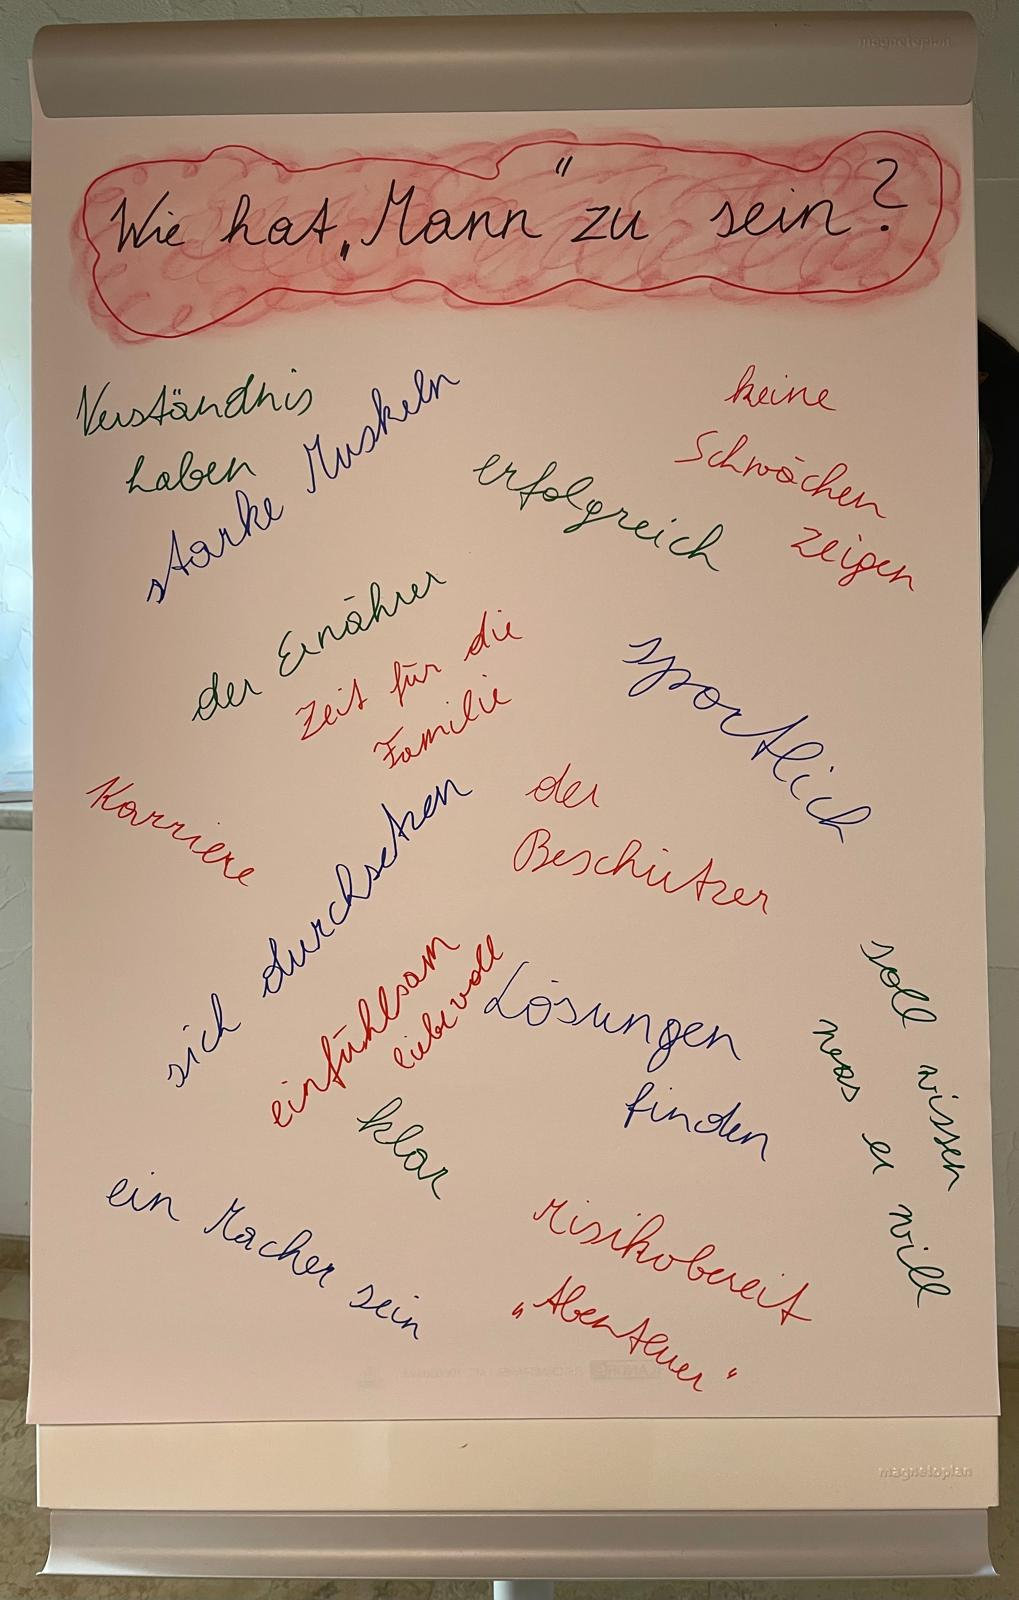 magnetoplan
Wie hat „Mann“ zu sein?
Verständnis
haben
starke Muskeln
keine
Schwächen
zeigen
erfolgreich
der Ernährer
Zeit für die
Familie
sportlich
Karriere
der
Beschützer
sich durchsetzen
einfühlsam
liebevoll
Lösungen
finden
soll wissen
was er will
klar
ein Macher sein
risikobereit
„Abenteuer“
magnetoplan